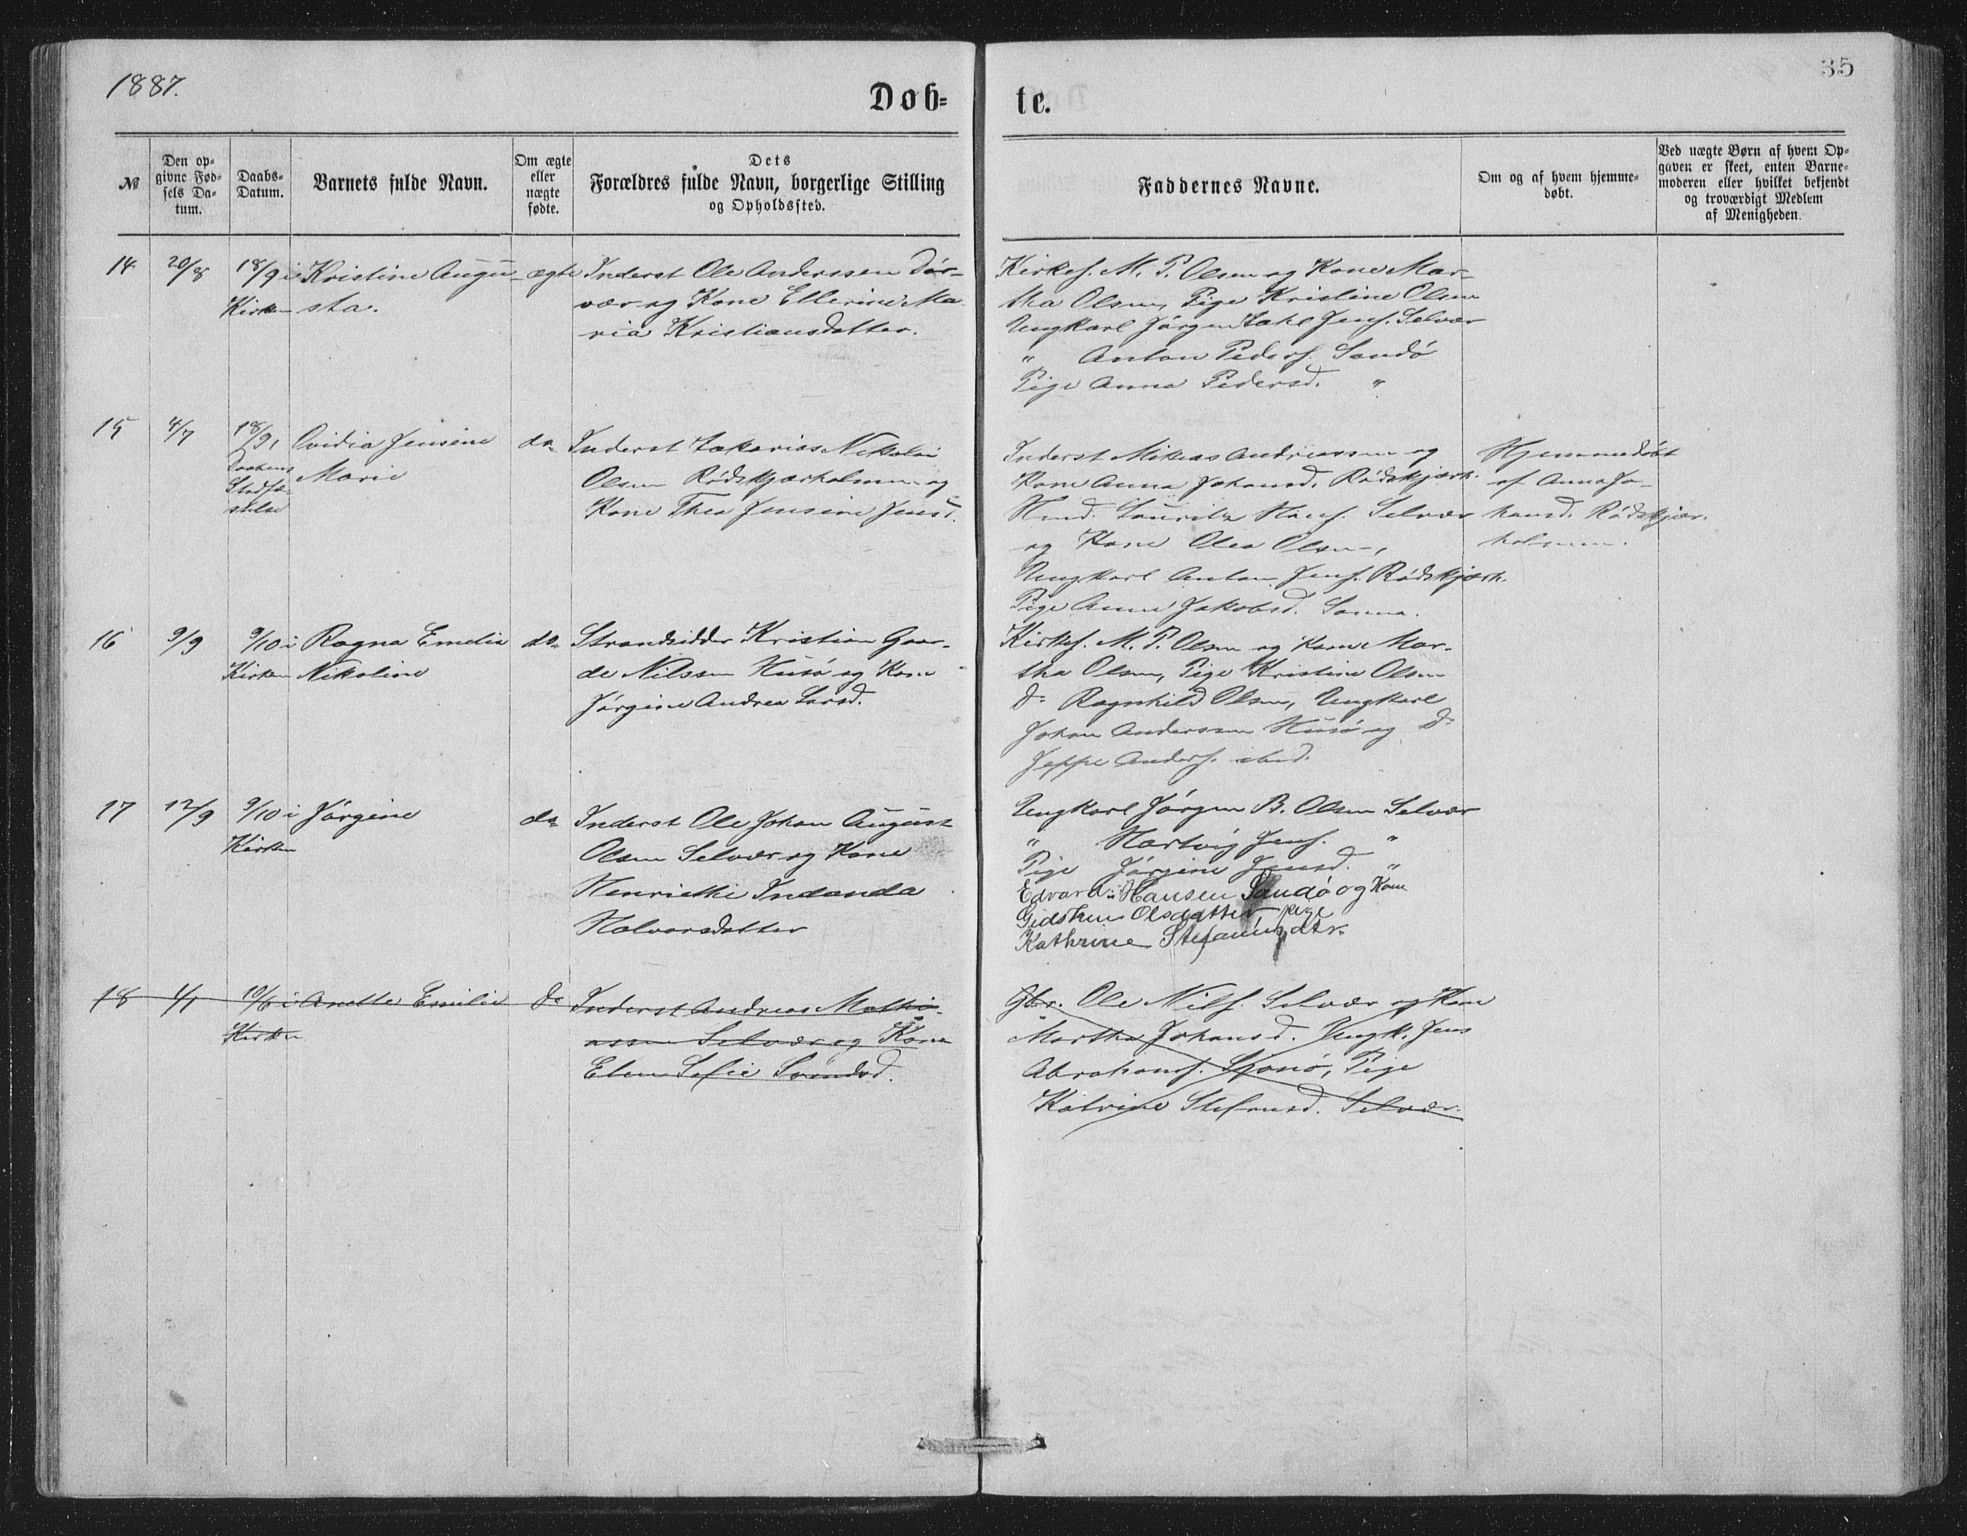 1887.
Døb-
te.
35
№
Den op-
givne Fød-
sels Da-
tum.
Daabs-
Datum.
Barnets fulde Navn.
Om ægte
eller
uægte
fødte.
Dets
Forældres fulde Navn, borgerlige Stilling
og Opholdssted.
Faddernes Navne.
Om og af hvem hjemme-
døbt.
Ved uægte Børn af hvem Op-
gaven er skeet, enten Barne-
moderen eller hvilket bekjendt
og troværdigt Medlem
af Menigheden.
14
20/8
18/9 i
Kirken
Kristine Augu-
sta.
ægte
Inderst Ole Anderssen Dør-
vær og Kone Ellerine Ma
ria Kristiansdatter.
Kirkes. M. P. Olsen og Kone Mar-
tha Olsen, Pige Kristine Olsen
Ungkarl Jørgen Zakl Jens. Selvær
" Anton Peders. Sandø
Pige Anna Pedersd. "
15
4/7
18/9,
Daabens
Stadfæ-
stelse
Ovidia Jensine
Marie
do
Inderst Zakarias Nikolai
Olsen Rødskjærholmen og
Kone Thea Jensine Jensd.
Inderst Mikias Andreassen og
Kone Anna Johansd. Rødskjærh.
Hmd. Lauritz Hans. Selvær
og Kone Olea Olsen,
Ungkarl Anton Jens. Rødskjærh.
Pige Anne Jakobsd. Sanna.
Hjemmedøbt
af Anna Jo-
hansd. Rødskjær-
holmen.
16
9/9
9/10 i
Kirken
Ragna Emelie
Nikoline
do
Strandsidder Kristian Gaar-
de Nilssen Husø og Kone
Jørgine Andrea Larsd.
Kirkes. M. P. Olsen og Kone Mar-
tha Olsen, Pige Kristine Olsen
do Ragnhild Olsen, Ungkarl
Johan Anderssen Husø og do
Jeppe Anders. ibid.
17
12/9
9/10 i
Kirken
Jørgine
do
Inderst Ole Johan August
Olsen Selvær og Kone
Henriette Indanda
Halvorsdatter
Ungkarl Jørgen B. Olsen Selvær
" Hartvig Jens. "
Pige Jørgine Jensd. "
Edvard Hansen Sandø og Kone
Gidsken Olsdatter pige
Kathrine Stefansdtr.
18
4/1
19/6 i
Kirken
Anette Emilie
do
Inderst Andreas Mathi-
assen Selvær og Kone
Elen Sofie Svendsd.
Gbr. Ole Nils. Selvær og Kone
Martha Johansd. Ungk. Jens
Abrahams. Pige
Katrine Stefansd. Selvær.